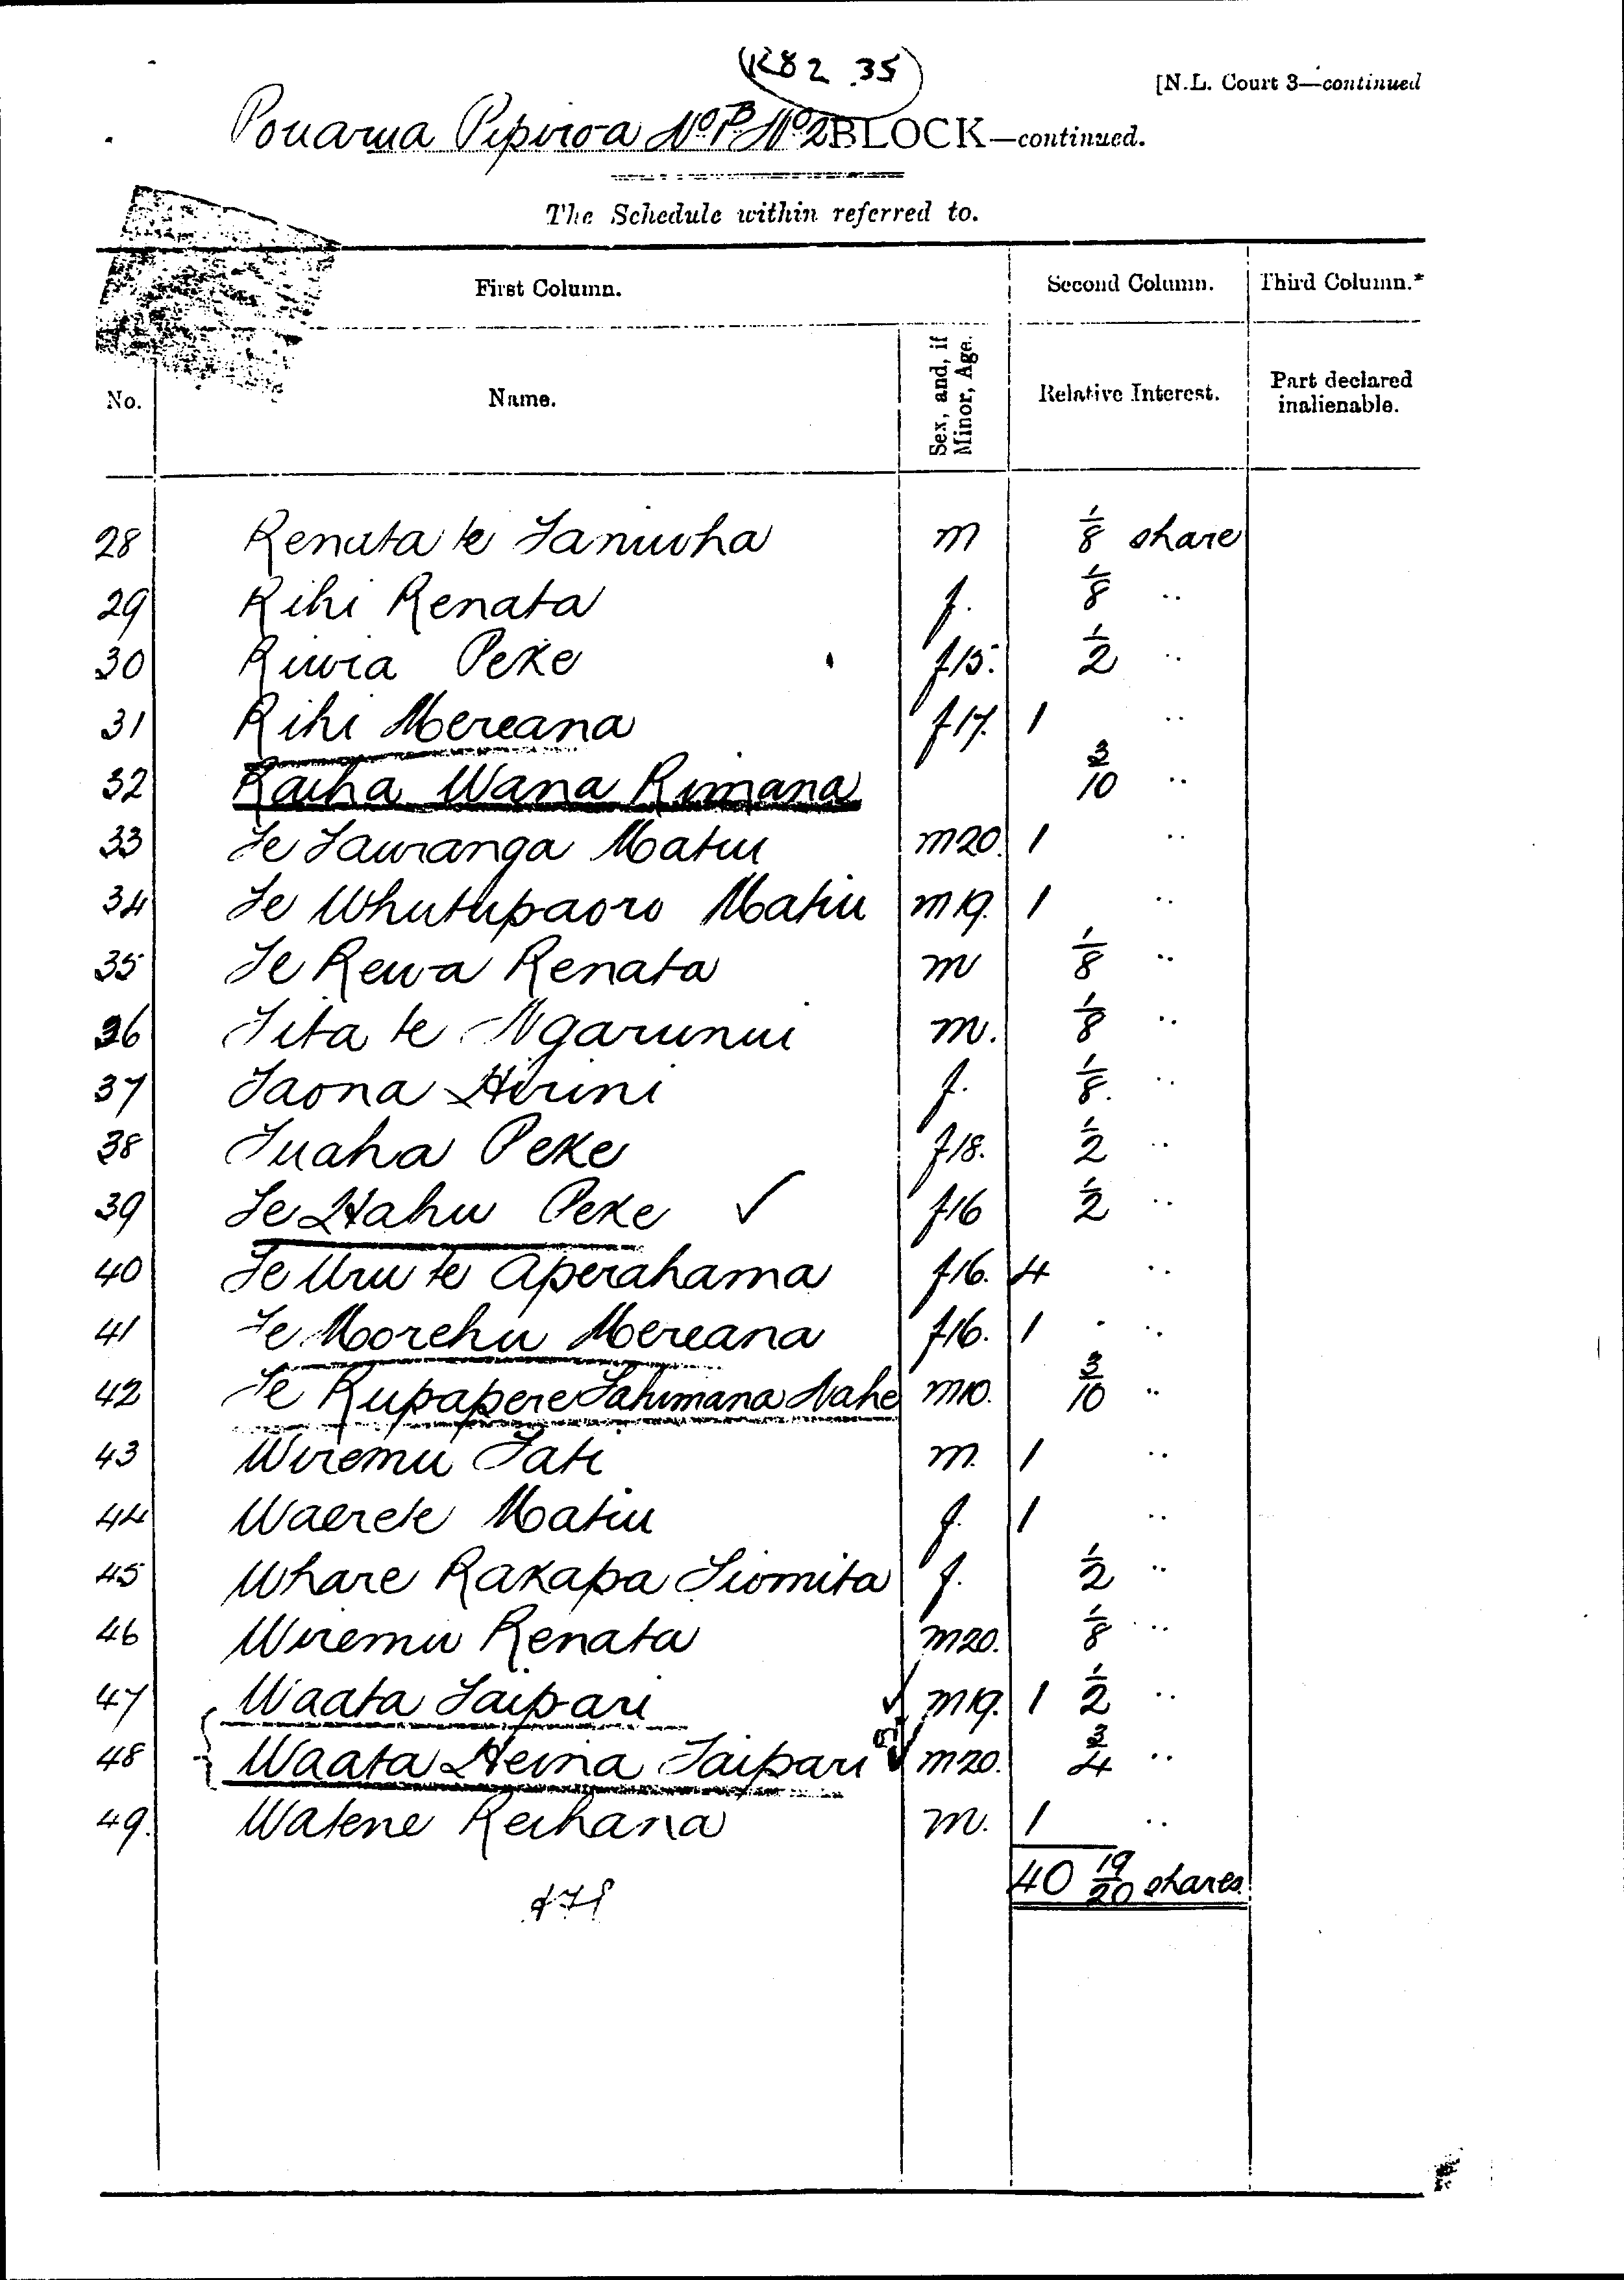 K82 35
[N.L. Court 3—continued
Pouarua Pipiroa No PB No 2 BLOCK—continued.
The Schedule within referred to.
First Column. Second Column. Third Column.*
No. Name. Sex, and, if Minor, Age. Relative Interest. Part declared inalienable.
28 Renata te Taniwha m 1/8 share
29 Rihi Renata f. 1/8 ..
30 Riwia Peke f15. 1/2 ..
31 Rihi Mereana f17. 1 ..
32 Raiha Wana Rimana 3/10 ..
33 Te Tauranga Matiu m20. 1 ..
34 Te Whutupaoro Matiu m19. 1 ..
35 Te Rewa Renata m 1/8 ..
36 Tita te Ngarunui m. 1/8 ..
37 Taona Hirini f. 1/8. ..
38 Tuaha Peke f18. 1/2 ..
39 Te Hahu Peke ✓ f16 1/2 ..
40 Te Uru te Aperahama f16. 4 ..
41 Te Morehu Mereana f16. 1 ..
42 Te Rupapere Tahimana Nahe m10. 3/10 ..
43 Wiremu Tati m. 1 ..
44 Waerete Matiu f. 1 ..
45 Whare Rakapa Tiomita f. 1/2 ..
46 Wiremu Renata m20. 1/8 ..
47 Waata Taipari ✓ m19. 1 1/2 ..
48 Waata Heina Taipari ✓ m20. 3/4 ..
49. Watene Reihana m. 1 ..
40 19/20 shares